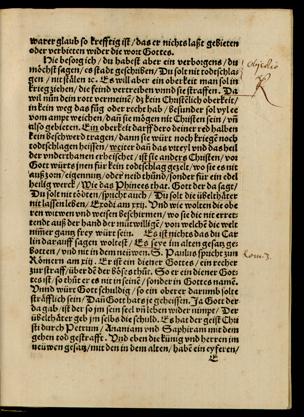 warer glaub so krefftig ist/ das er nichts laßt gebieten
oder verbitten wider die wort Gottes.
Hie besorg ich/ du habest aber ein verborgens/ du
möchst sagen/ es stadt geschriben/ Du solt nit todschla-
gen/ nit stälen ꝛc. Es will aber ein oberkeit man sol in
krieg ziehen/ die feind vertreiben vnnd sie straffen. Da
wil nun dein rott vermeine/ dz kein Christelich oberkeit/
in kein weg das fůg oder recht hab/ besunder sol yl ee
vom ampt weichen/ dañ sie mögen nit Christen sein/ vñ
also gebieten. Ein oberkeit darff do deiner red halben
kein beschwerd tragen/ dann sie würt noch kriegē noch
todschlagen heissen/ weiter dañ das vteyl vnd das heil
der vnderthanen erheischet/ ist sie anders Christen/ vor
Gott würts jnen für kein todschlag gezelt/ wo sie es nit
auß zorn/ eigennutz/ oder neid thünd/ sonder für ein edel
heilig werck/ Wie das Phinees that. Gott der da sagt/
Du solt nit tödten/ spricht auch/ Du solt die übelthäter
nit lassen leben/ Exodi am xxij. Vnd wie wolten die obe
ren witwen und weisen beschirmen/ wo sie die nit erret-
tend auß der hand der můtwilligē/ von welchē die welt
nim̃er gantz frey wirt sein. Es ist nichts das du Car
lin darauff sagen woltest/ Es seye im alten gesatz ge-
botten/ vnd nit in dem neüwen. S. Paulus spricht zun
Römern am xiij. Er ist ein diener Gottes/ ein recher
zur straff/ über dē der böses thůt. So er ein diener Got-
tes ist/ so thůt er es nit in seinē/ sonder in Gottes namē.
Vnnd würt Gott schuldig/ so ein oberer darumb solt
sträfflich sein/ Dañ Gott hats je geheissen. Ja Gott der
da gab/ ist der so jm sein seel vñ leben wider nimpt/ Der
übelthäter geb jm selbs die schuld. Es hat der geist Chri
sti durch Petrum/ Ananiam vnd Saphiram mit dem
gehen tod gestrafft. Vnd eben die künig vnd herren im
neüwen gesatz/ mit den in dem alten/ habē ein eyferen/
Rom. 13.